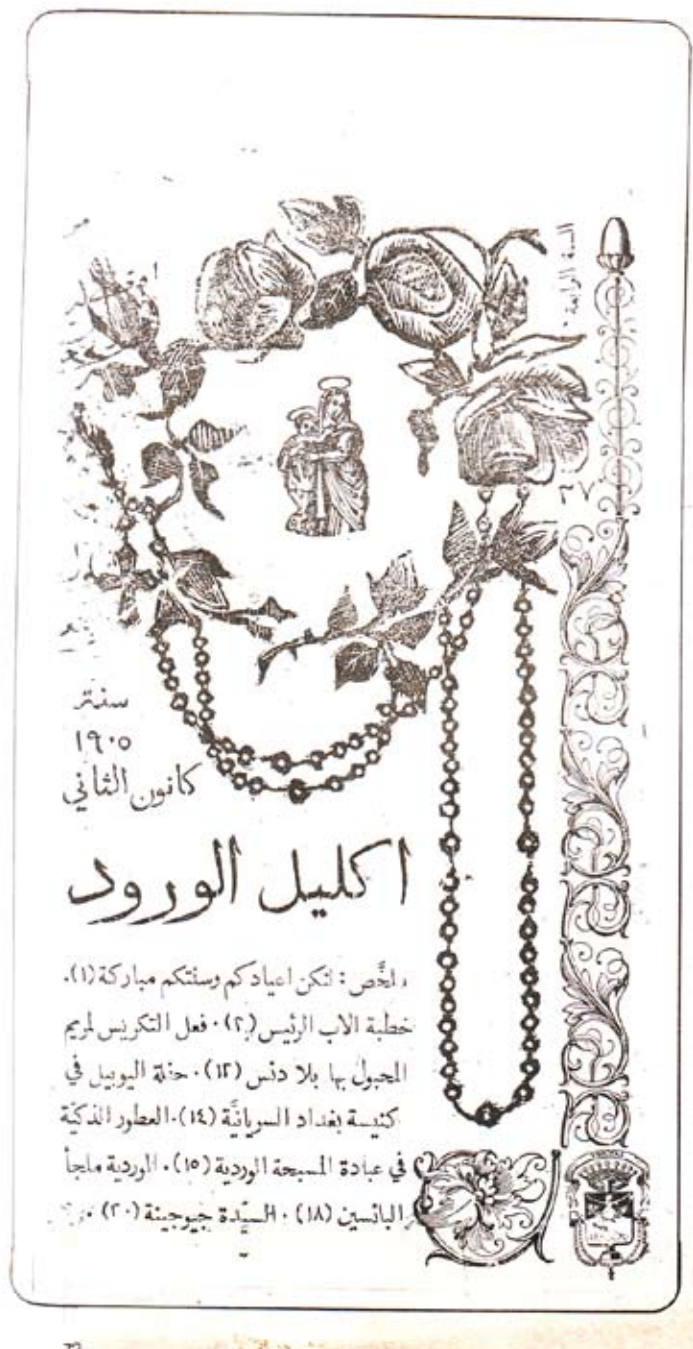 السنة الرابعة
٣٧
سنة
١٩٠٥
كانون الثاني
اكليل الورود
ملخَّص : لتكن اعيادكم وسنتكم مباركة (١).
خطبة الاب الرئيس (٢) . فعل التكريس لمريم
المحبول بها بلا دنس (١٢) . حفلة اليوبيل في
كنيسة بغداد السريانيَّة (١٤) . العطور الذكيّة
في عبادة المسبحة الوردية (١٥) . الوردية ملجأ
البائسين (١٨) . السيّدة جيوجينة (٢٠)